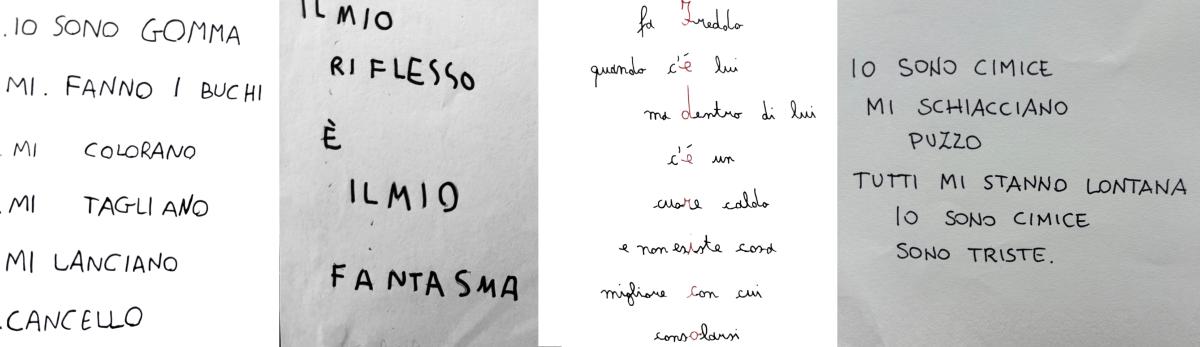 .IO SONO GOMMA
MI. FANNO I BUCHI
. MI COLORANO
.MI TAGLIANO
MI LANCIANO
.CANCELLO
IL MIO
RIFLESSO
È
IL MIO
FANTASMA
fa Freddo
quando c'é lui
ma dentro di lui
c'é un
cuore caldo
e non esiste cosa
migliore con cui
consolarsi
IO SONO CIMICE
MI SCHIACCIANO
PUZZO
TUTTI MI STANNO LONTANA
IO SONO CIMICE
SONO TRISTE.